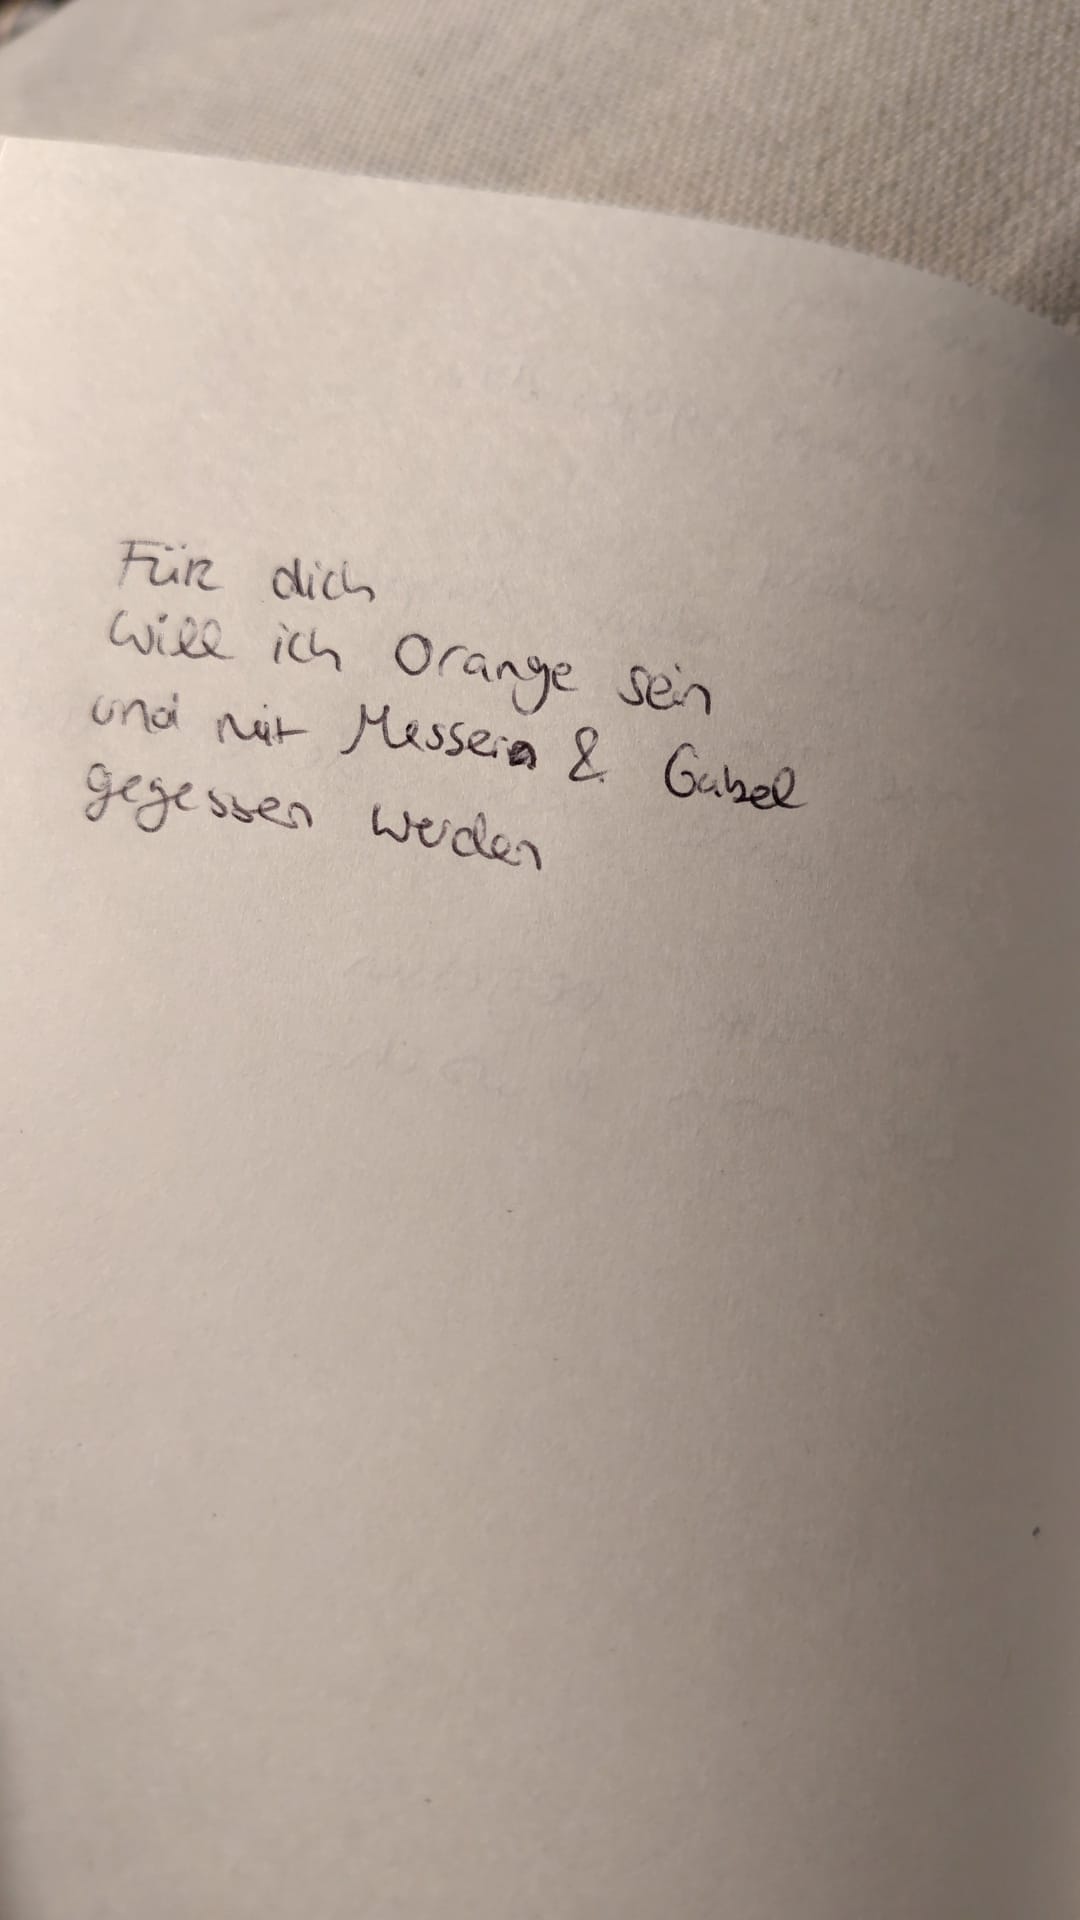 Für dich
Will ich Orange sein
und mit Messern & Gabel
gegessen werden